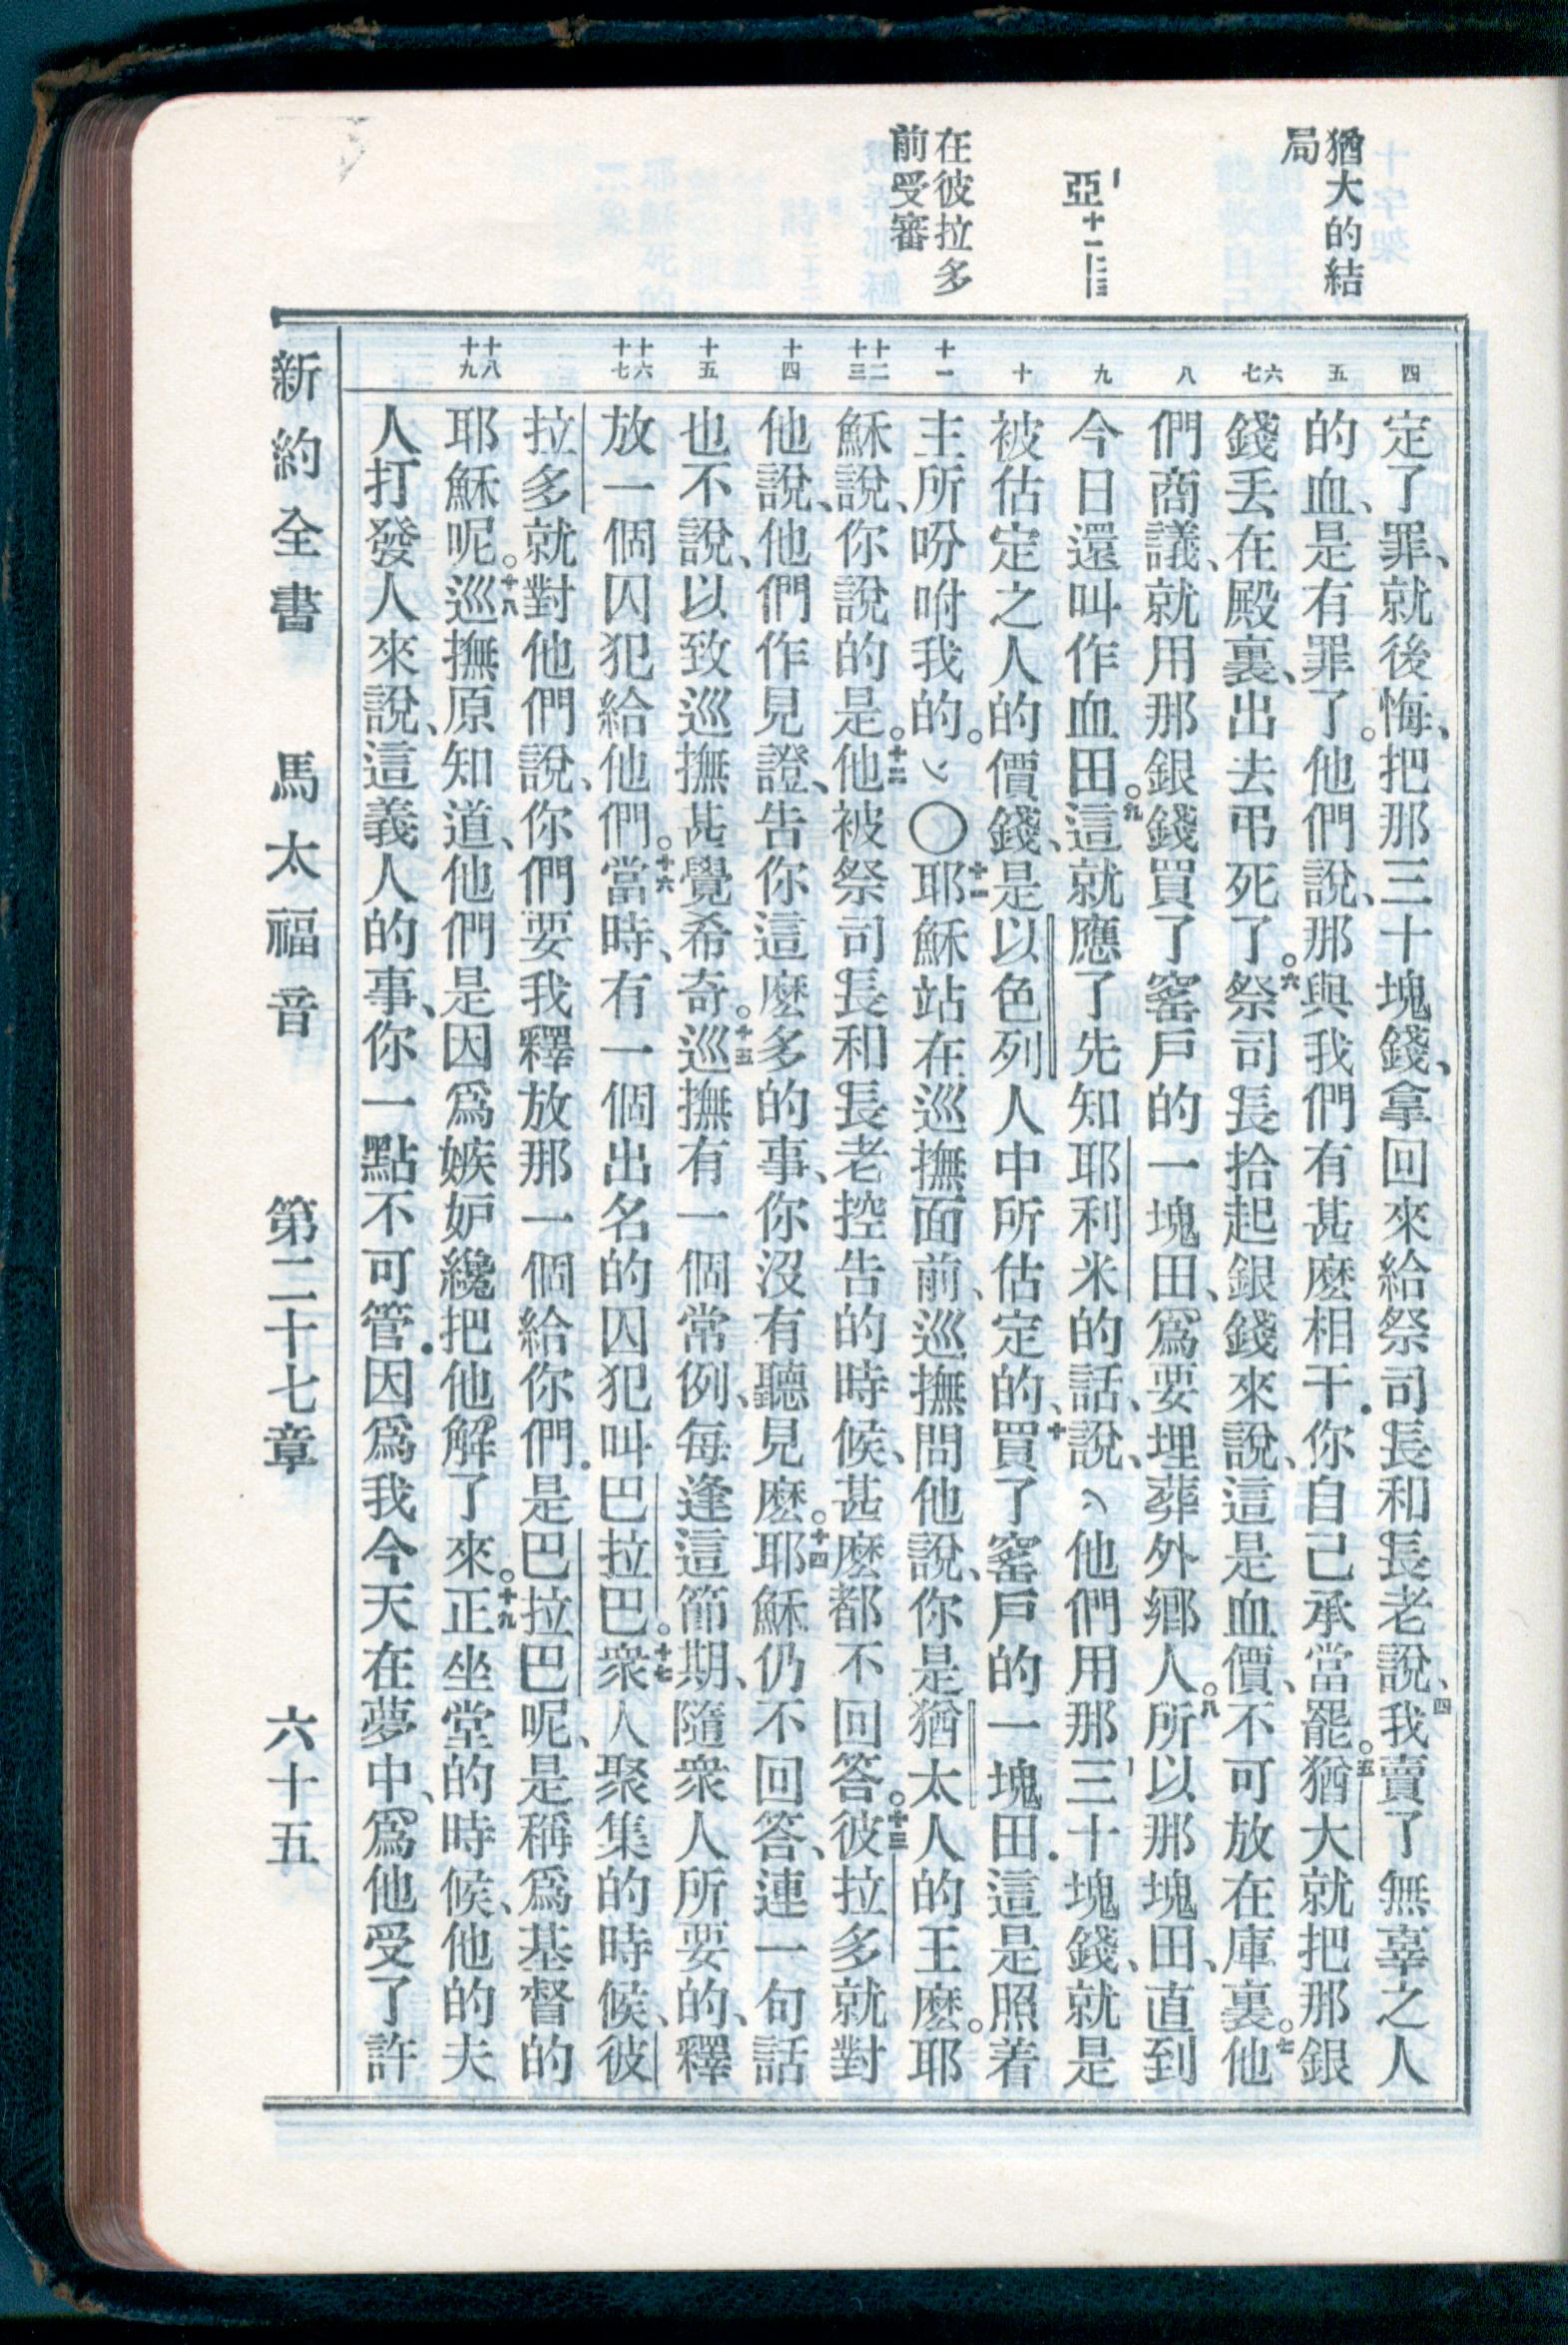 猶大的結
局
亞十一 12 13
在彼拉多
前受審
四
五
六
七
八
九
十
十一
十二
十三
十四
十五
十六
十七
十八
十九
定了罪、就後悔、把那三十塊錢、拿回來給祭司長和長老說、四我賣了無辜之人
的血、是有罪了。他們說、那與我們有甚麽相干．你自己承當罷。五猶大就把那銀
錢丟在殿裏、出去弔死了。六祭司長拾起銀錢來說、這是血價、不可放在庫裏。七他
們商議、就用那銀錢買了窰戶的一塊田、爲要埋葬外鄉人。八所以那塊田、直到
今日還叫作血田。九這就應了先知耶利米的話、說、（他們用那三十塊錢、就是
被估定之人的價錢、是以色列人中所估定的、十買了窰戶的一塊田．這是照着
主所吩咐我的。）〇十一耶穌站在巡撫面前、巡撫問他說、你是猶太人的王麽。耶
穌說、你說的是。十二他被祭司長和長老控告的時候、甚麽都不回答。十三彼拉多就對
他說、他們作見證、告你這麽多的事、你沒有聽見麽。十四耶穌仍不回答、連一句話
也不說、以致巡撫甚覺希奇。十五巡撫有一個常例、每逢這節期、隨衆人所要的、釋
放一個囚犯給他們。十六當時、有一個出名的囚犯叫巴拉巴。十七衆人聚集的時候、彼
拉多就對他們說、你們要我釋放那一個給你們．是巴拉巴呢、是稱爲基督的
耶穌呢。十八巡撫原知道、他們是因爲嫉妒纔把他解了來。十九正坐堂的時候、他的夫
人打發人來說、這義人的事、你一點不可管．因爲我今天在夢中、爲他受了許
新約全書 馬太福音 第二十七章 六十五